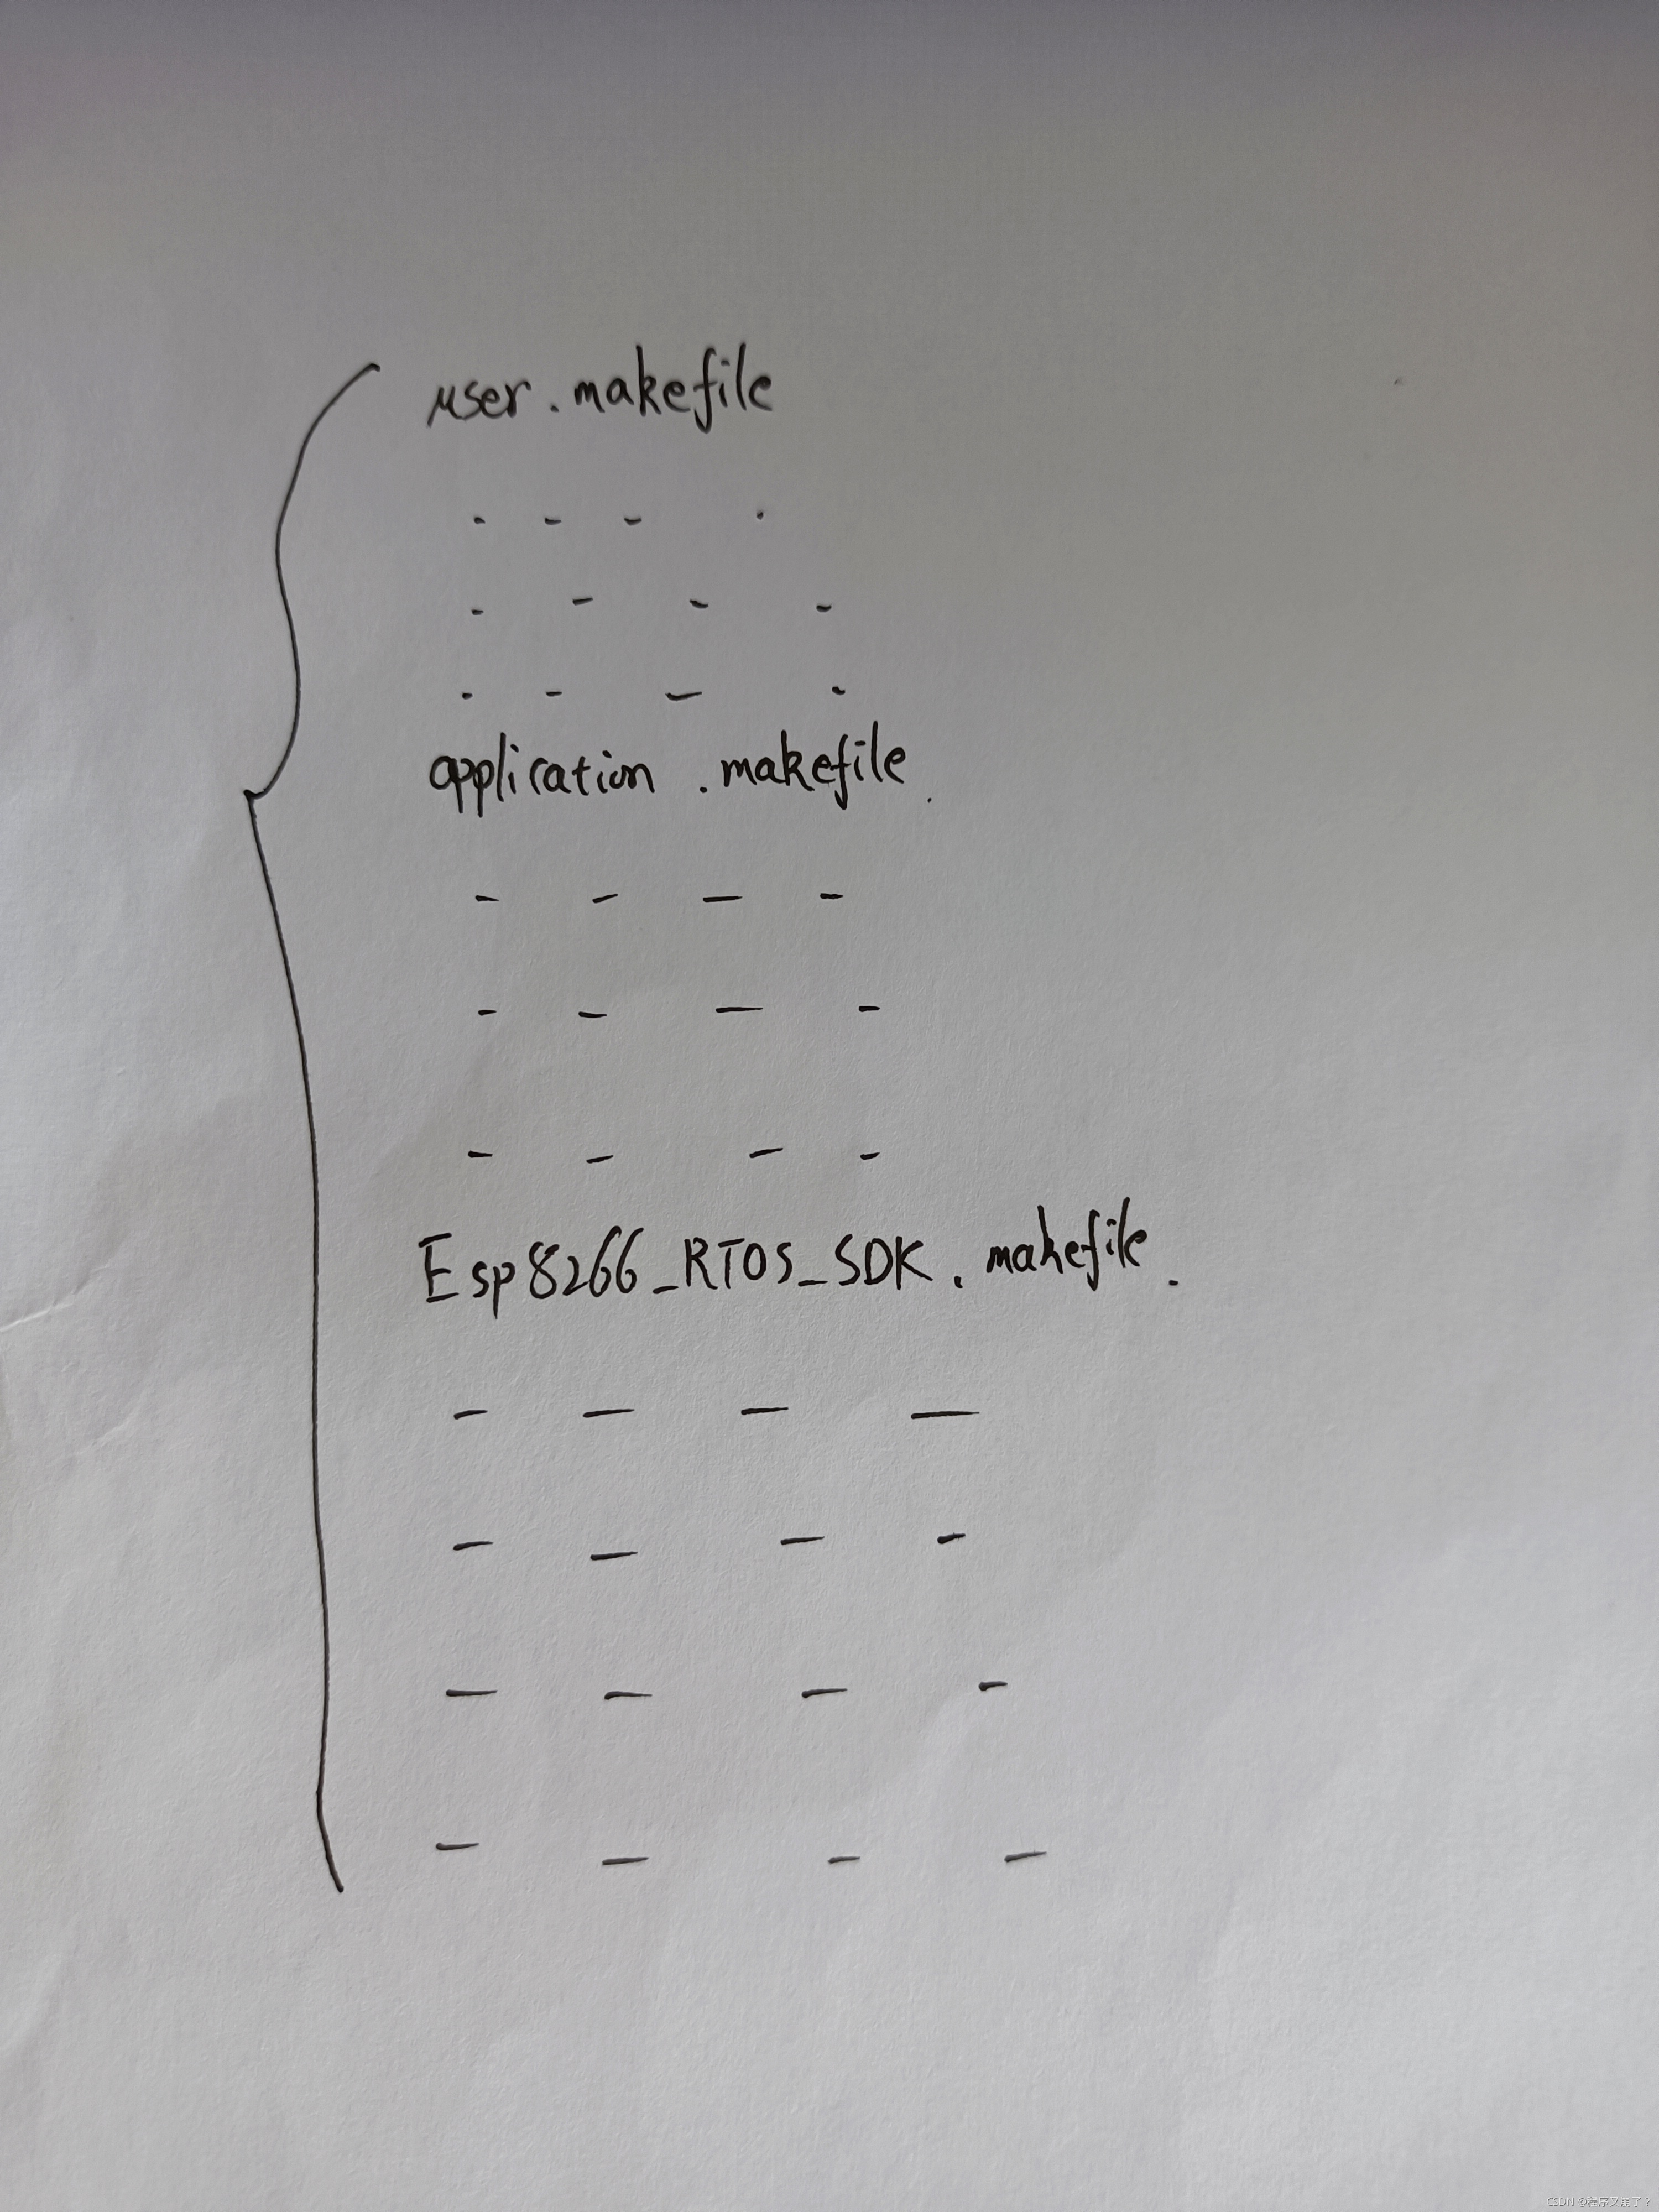 user.makefile
. - - .
. - - -
. - - .
application .makefile.
- - - -
- - - -
- - - -
Esp8266_RTOS_SDK.makefile.
- - - -
- - - -
- - - -
- - - -
CSDN @程序又崩了?